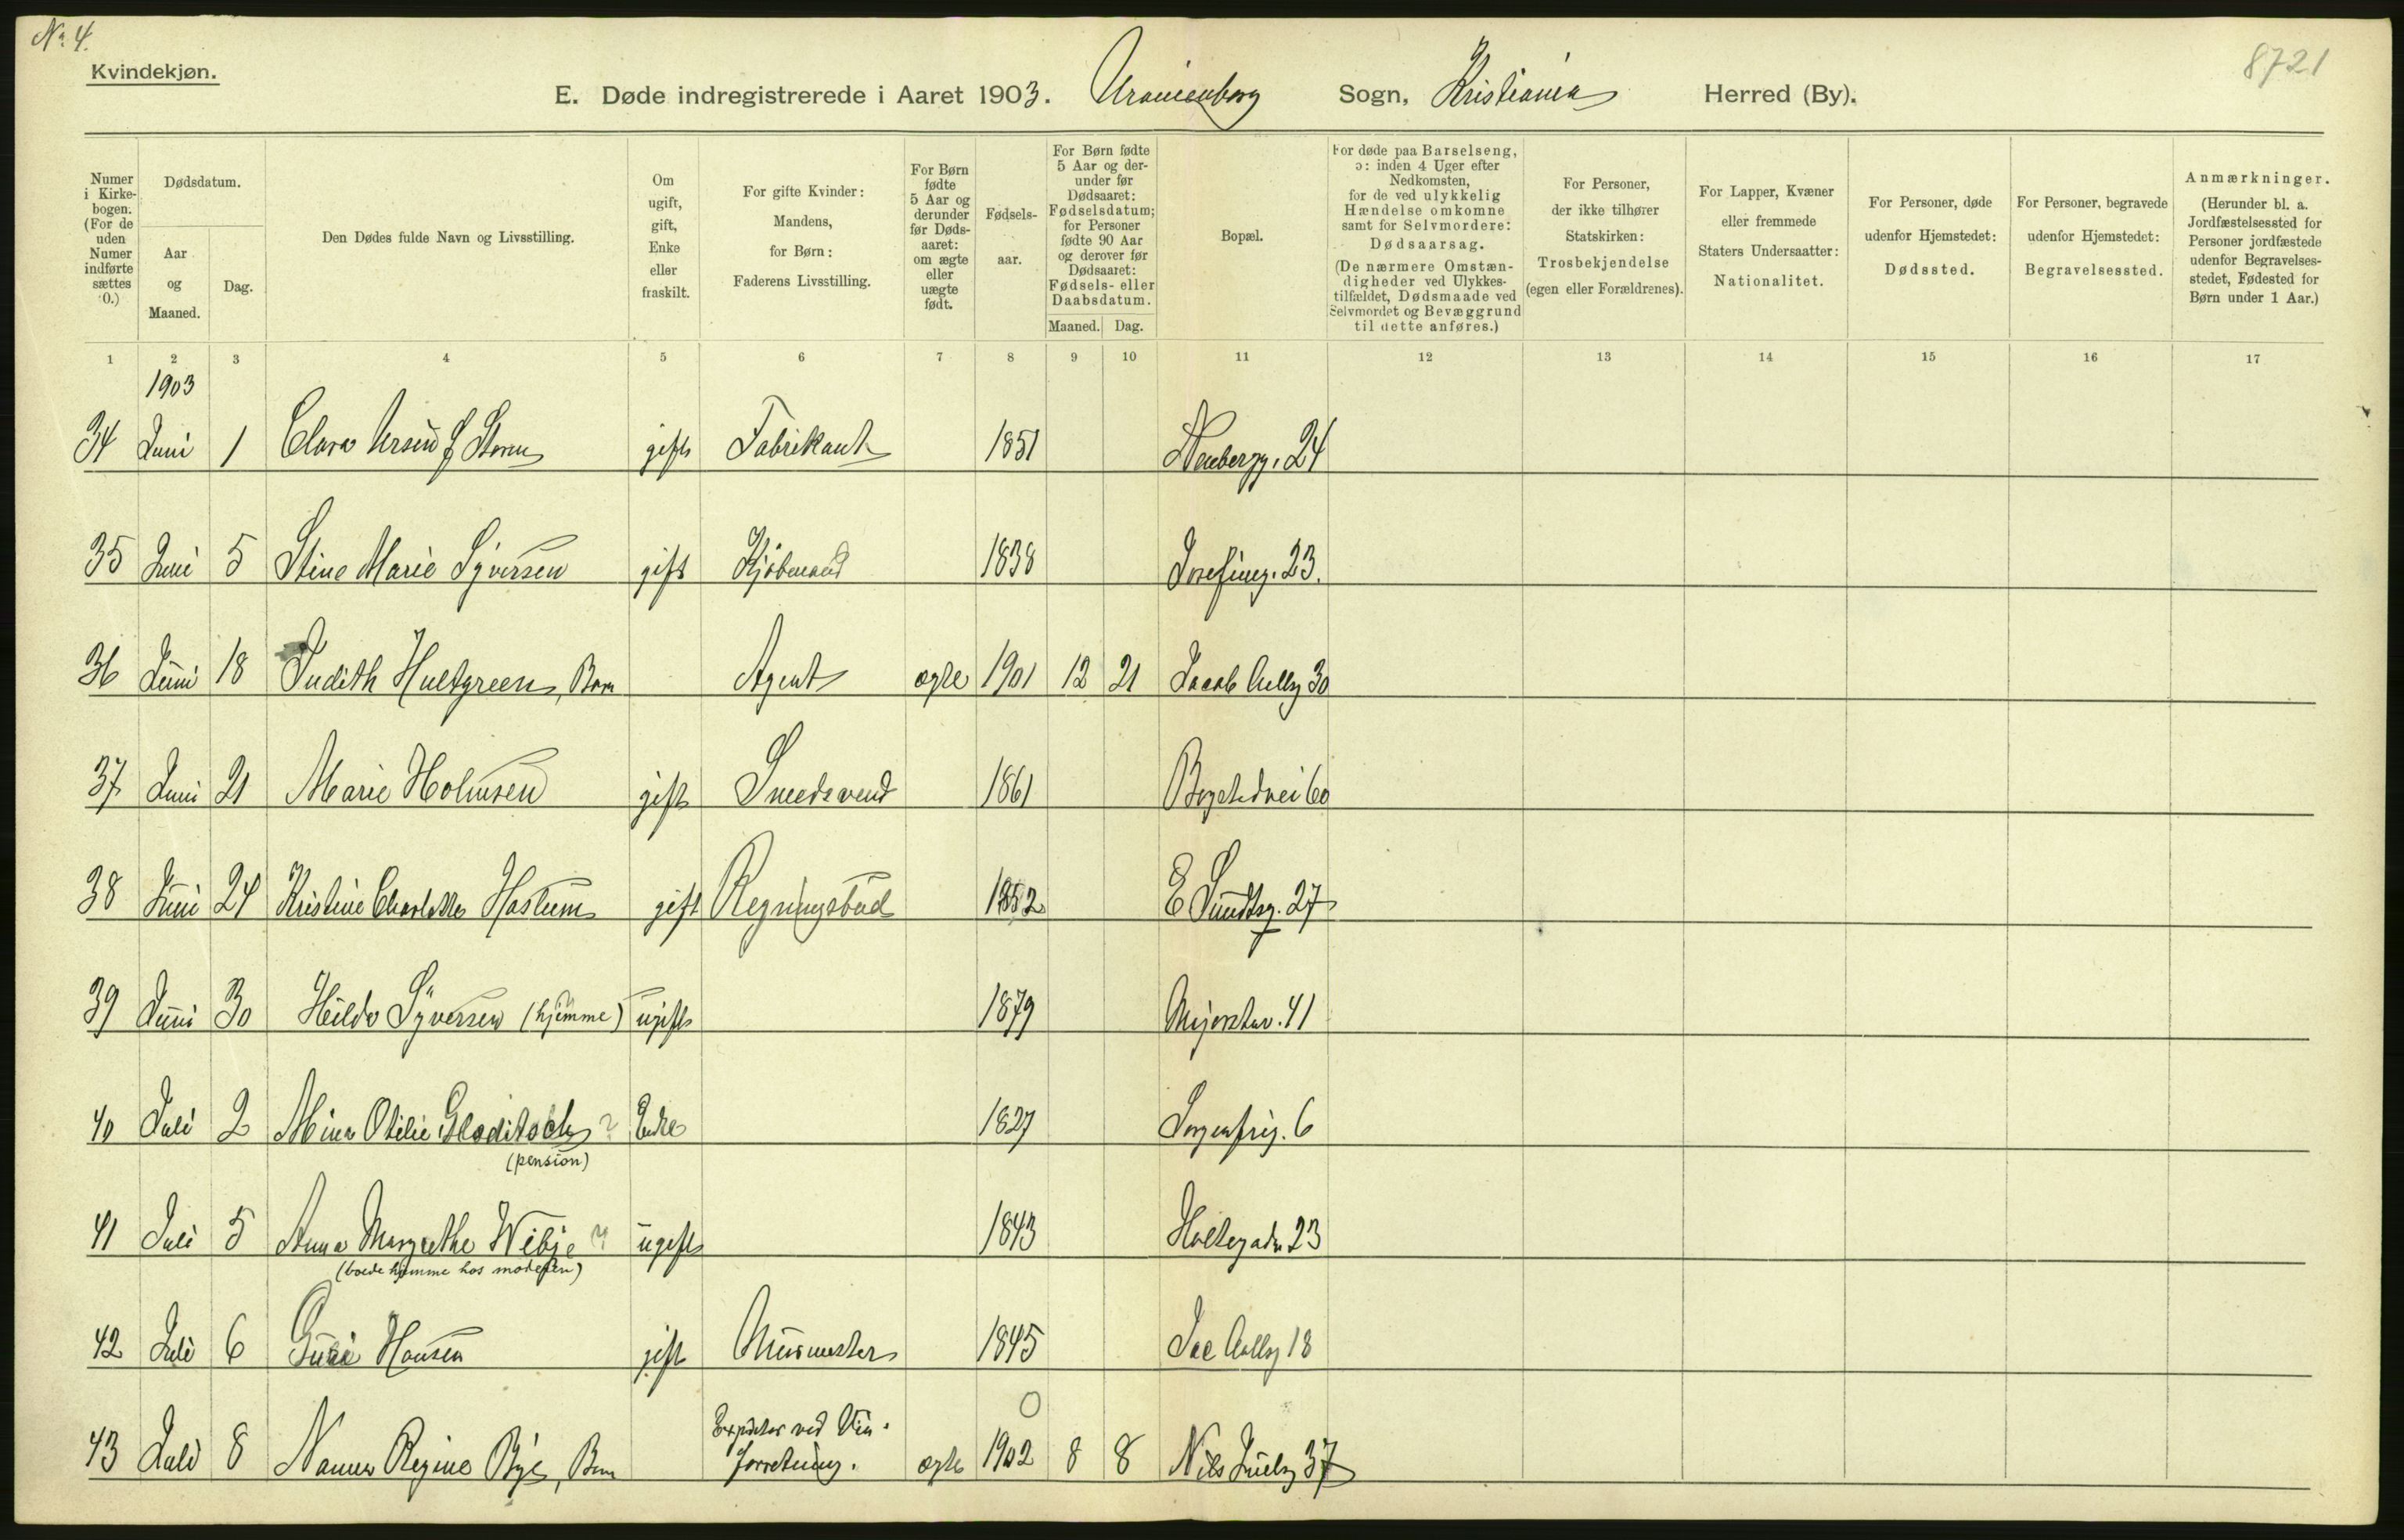 No. 4.
8721
Kvindekjøn.
E. Døde indregistrerede i Aaret 1903. Uranienborg Sogn, Kristiania Herred (By).
Numer i Kirke-bogen. (For de uden Numer indførte sættes 0.)
Dødsdatum.
Aar og Maaned.
Dag.
Den Dødes fulde Navn og Livsstilling.
Om ugift, gift, Enke eller fraskilt.
For gifte Kvinder: Mandens, for Børn: Faderens Livsstilling.
For Børn fødte 5 Aar og derunder før Døds-aaret: om ægte eller uægte født.
Fødsels-aar.
For Børn fødte 5 Aar og der-under før Dødsaaret: Fødselsdatum; for Personer fødte 90 Aar og derover før Dødsaaret: Fødsels- eller Daabsdatum.
Maaned. Dag.
Bopæl.
For døde paa Barselseng, ɔ: inden 4 Uger efter Nedkomsten, for de ved ulykkelig Hændelse omkomne samt for Selvmordere: Dødsaarsag. (De nærmere Omstæn-digheder ved Ulykkes-tilfældet, Dødsmaade ved Selvmordet og Bevæggrund til dette anføres.)
For Personer, der ikke tilhører Statskirken: Trosbekjendelse (egen eller Forældrenes).
For Lapper, Kvæner eller fremmede Staters Undersaatter: Nationalitet.
For Personer, døde udenfor Hjemstedet: Dødssted.
For Personer, begravede udenfor Hjemstedet: Begravelsessted.
Anmærkninger. (Herunder bl. a. Jordfæstelsessted for Personer jordfæstede udenfor Begravelses-stedet, Fødested for Børn under 1 Aar.)
1 2 3 4 5 6 7 8 9 10 11 12 13 14 15 16 17
1903
34 Juni 1 Clara Ursin f Storm gift Fabrikant 1851 Neubergg. 24
35 Juni 5 Stine Marie Syversen gift Kjøbmand 1838 Josefineg. 23.
36 Juni 18 Judith Hultgreen, Barn Agent ægte 1901 12 21 Jacob Aallsg 30
37 Juni 21 Marie Holmsen gift Smedsvend 1861 Bogstadvei 60
38 Juni 24 Kristine Charlotte Haslum gift Regningsbud 1852 E Sundtsg. 27
39 Juni 30 Hilda Syversen (hjemme) ugift 1879 Majorstuv. 41
40 Juli 2 Mina Otilie Gladitsch ? Enke 1827 Sorgenfrig. 6
(pension)
41 Juli 5 Anna Margrethe Wibje ? ugift 1843 Holtegadn 23
(boede hjemme hos moderen)
42 Juli 6 Guri Hansen gift Murmester 1845 Jac Aallsg 18
43 Juli 8 Nanna Regine Bye, Barn Expeditør ved Vin-forretning. ægte 1902 8 8 Nils Juelsg 37
0